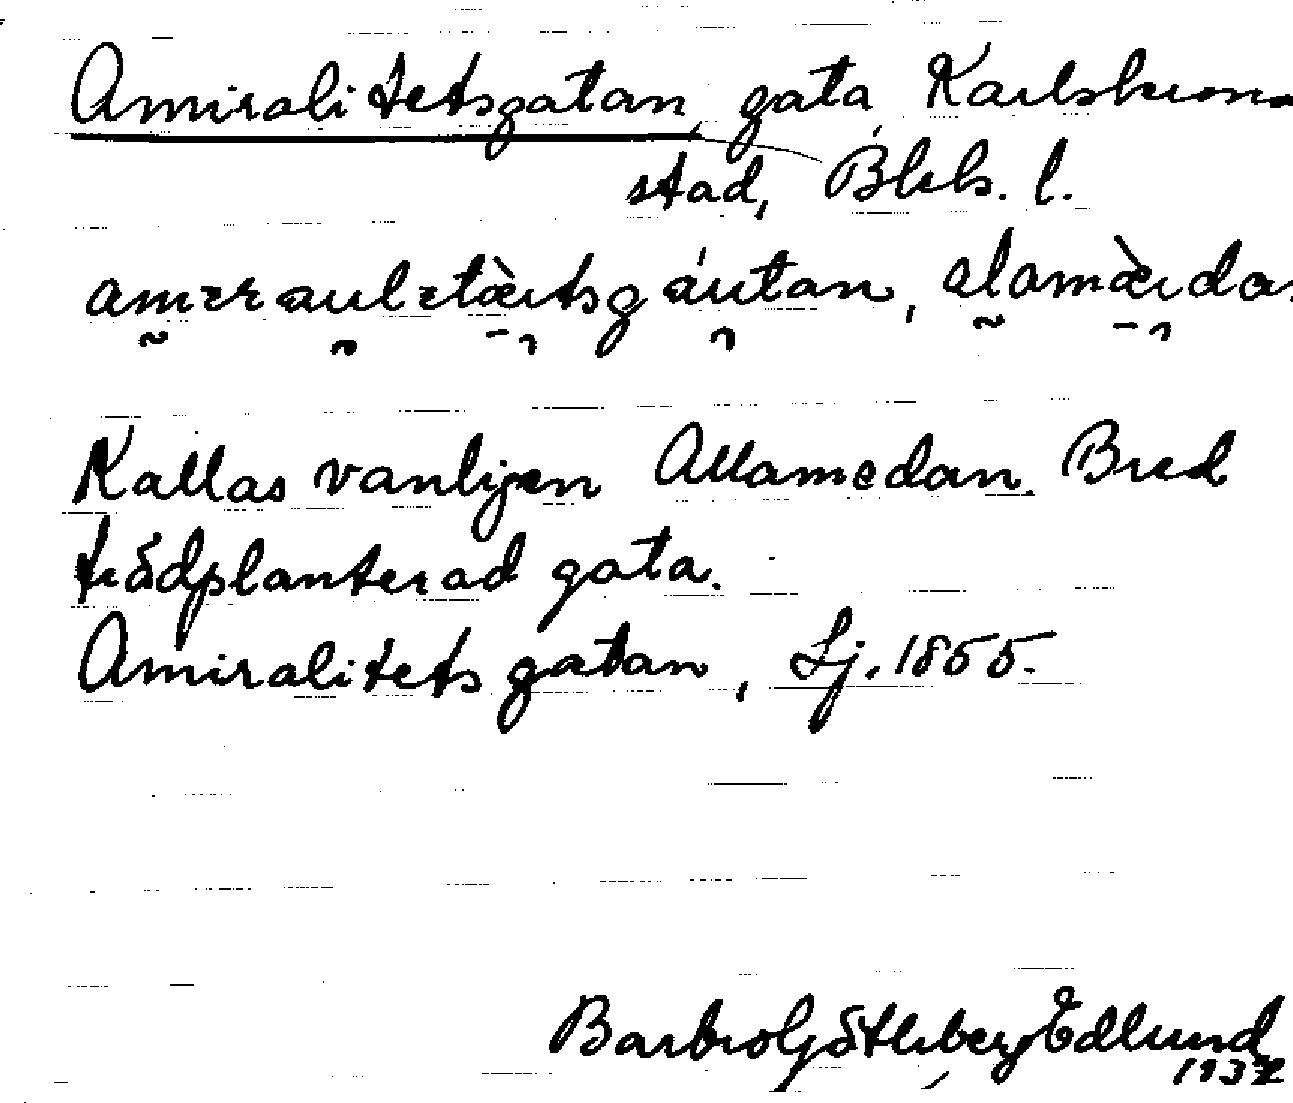 Amiralitetsgatan, gata, Karlskrona
stad,Blek. l.
Kallas vanligen Allamedan. Bred
trädplanterad gata.
Amiralitetsgatan, Lj. 1855.
Barbro Götlibey Edlund